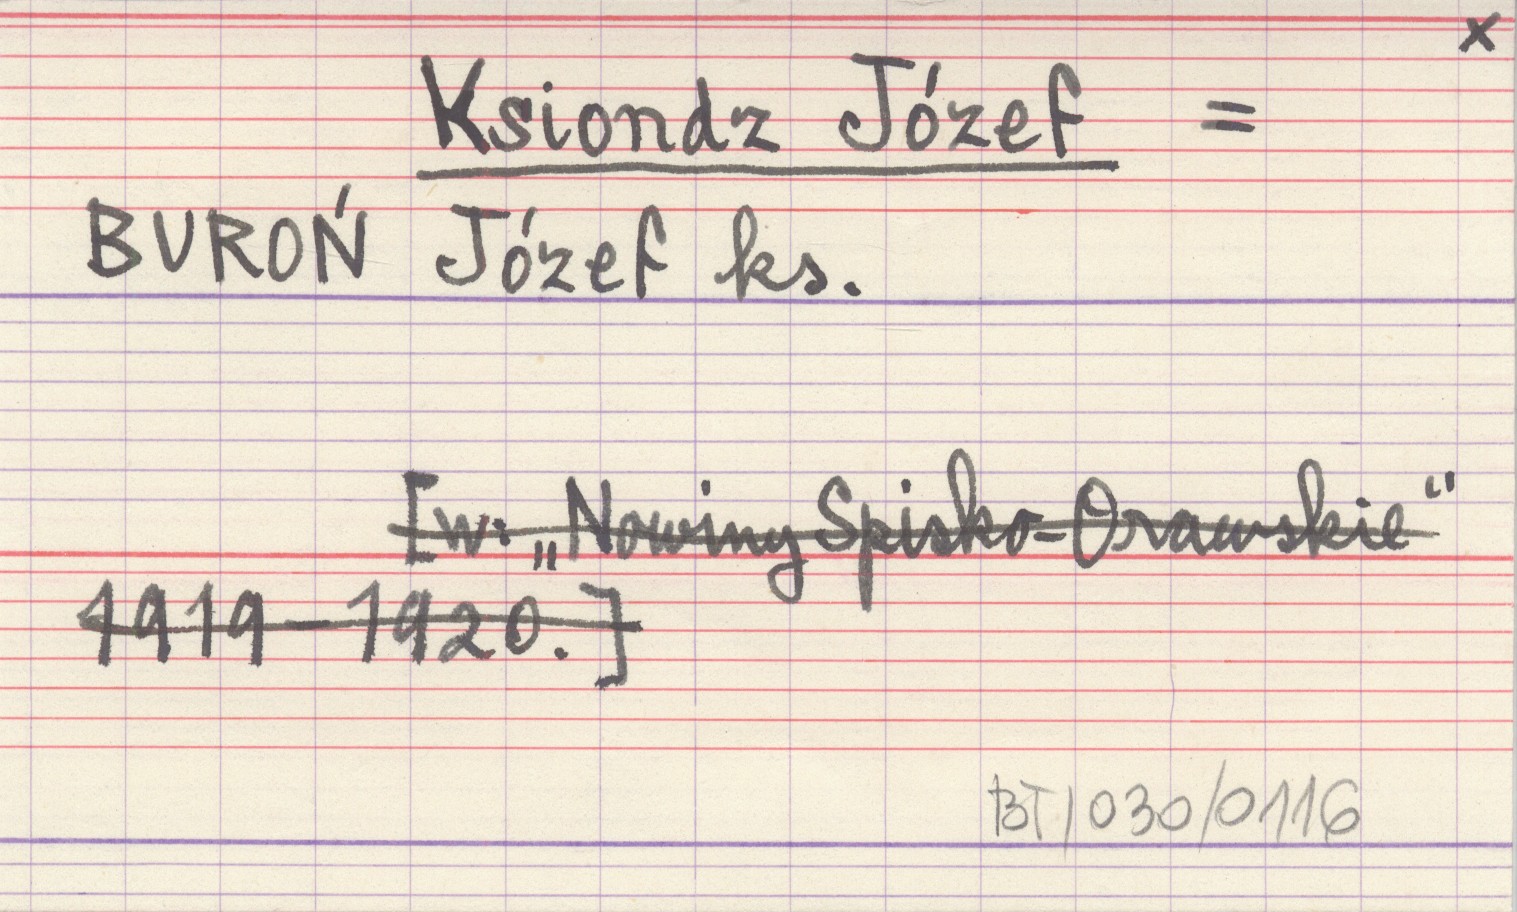 x
Ksiondz Józef =
BUROŃ Józef ks.
[w: „Nowiny Spisko-Orawskie“
1919-1920.]
BT/030/0116